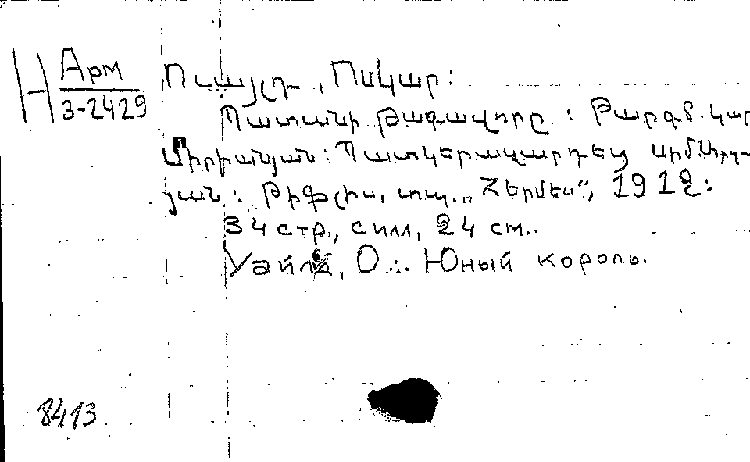 Н Арм
3-2429
Ուայլդ, Օսկար:
Պատանի թագավորը: Թարգմ. Կար
Միրիանյան: Պատկերազարդեց
յան: Թիֆլիս, տպ. „Հերմես“, 1912:
34 стр., с илл, 24 см..
Уайлд, О.: Юный король.
8413